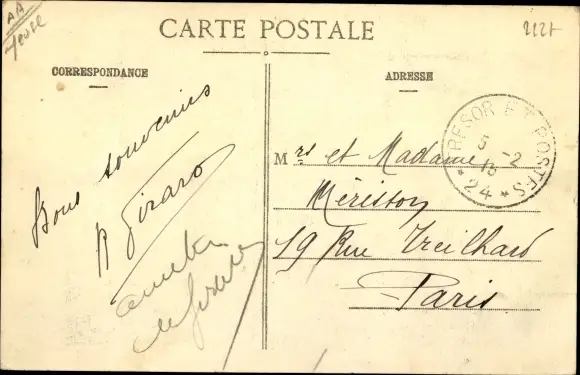 AA
CARTE POSTALE
2127
CORRESPONDANCE
ADRESSE
Bons souvenirs
A Girard
TRESOR ET POSTES
5 -2
15
* 24 *
Mrs et Madame
Mérisson
19 Rue Treilhard
Paris